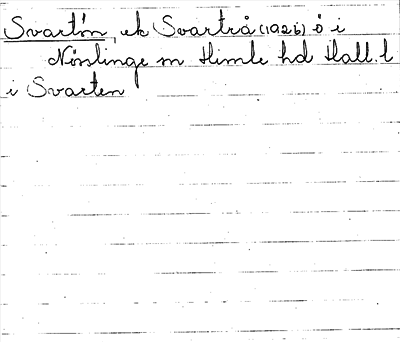 Svartön, ek Svartrå (1926) ö i
Nösslinge sn Himle hd Hall. l
i Svarten